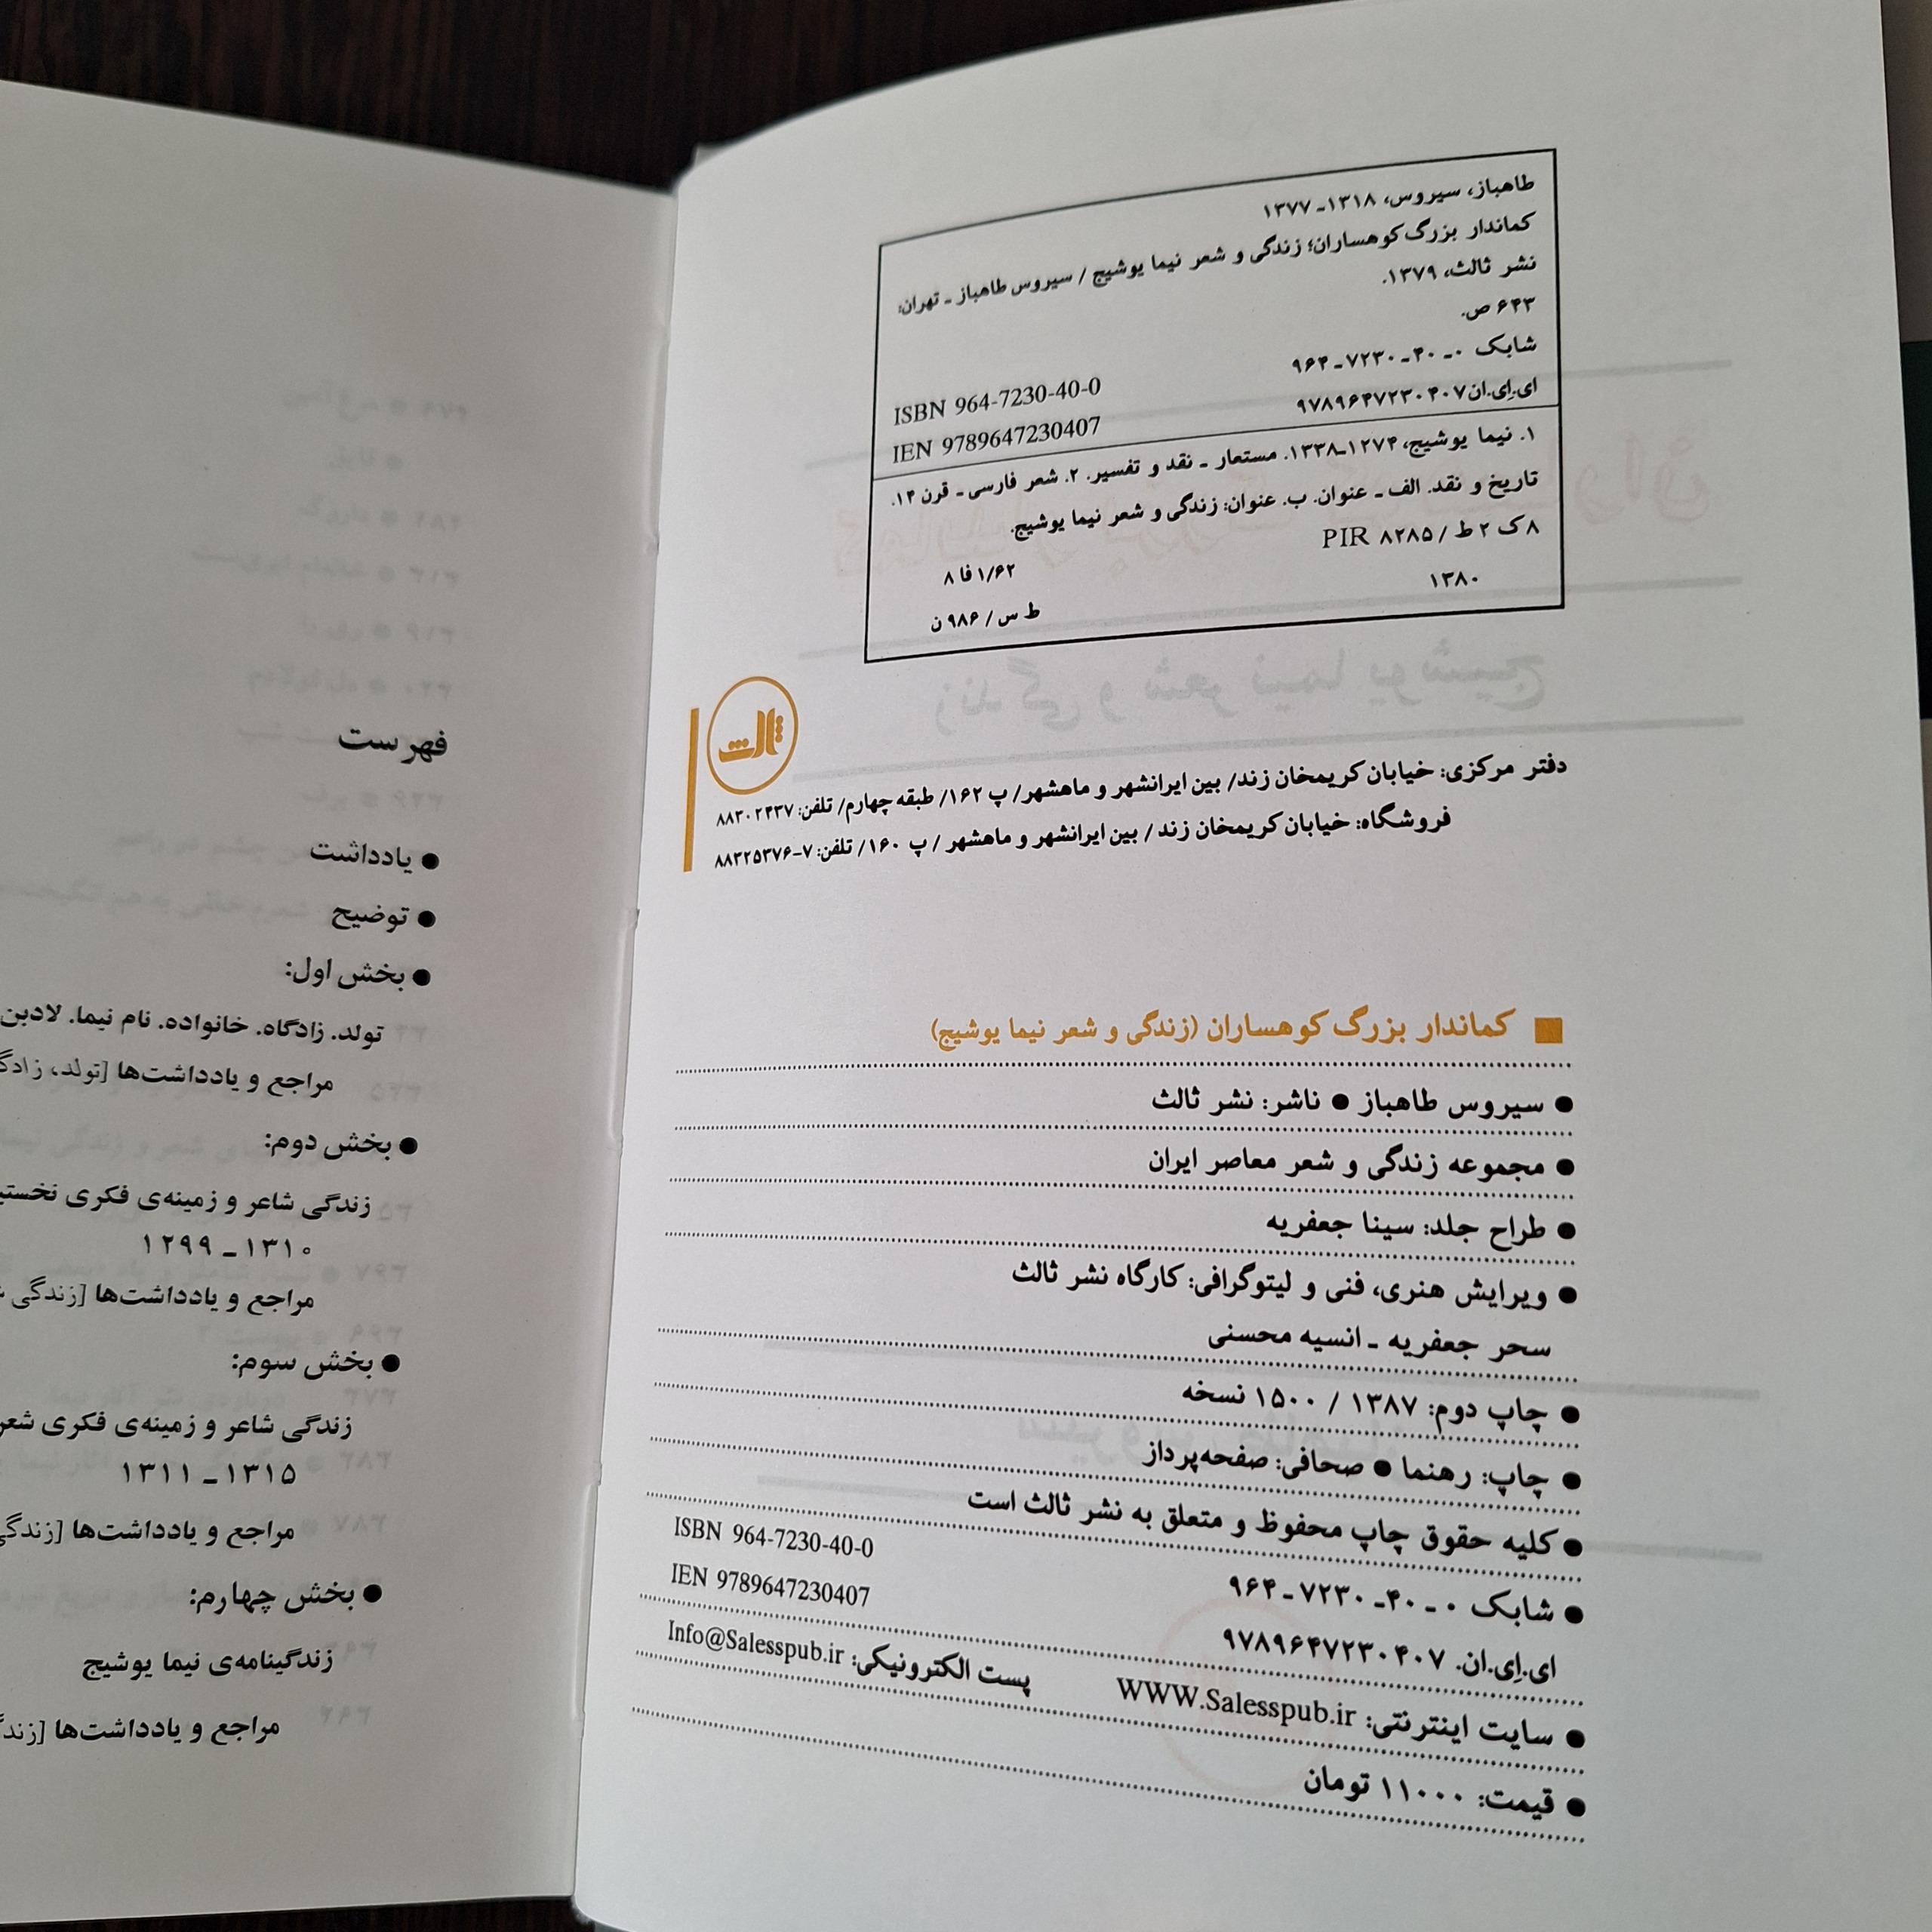 طاهباز، سیروس، ۱۳۱۸ـ۱۳۷۷
کماندار بزرگ کوهساران؛ زندگی و شعر نیما یوشیج / سیروس طاهباز ـ تهران:
نشر ثالث، ۱۳۷۹.
۶۴۳ ص.
شابک ۰ـ ۴۰ـ ۷۲۳۰ـ ۹۶۴
ISBN 964-7230-40-0
ای.اِی.ان ۹۷۸۹۶۴۷۲۳۰۴۰۷
IEN 9789647230407
۱. نیما یوشیج، ۱۲۷۴ـ۱۳۳۸. مستعار ـ نقد و تفسیر. ۲. شعر فارسی ـ قرن ۱۴.
تاریخ و نقد. الف ـ عنوان. ب. عنوان: زندگی و شعر نیما یوشیج.
۸ ک ۲ ط / ۸۲۸۵ PIR
۱/۶۲ فا ۸
۱۳۸۰
ط س / ۹۸۶ ن
ثالث
دفتر مرکزی: خیابان کریمخان زند/ بین ایرانشهر و ماهشهر/ پ ۱۶۲/ طبقه چهارم/ تلفن: ۸۸۳۰۲۴۳۷
فروشگاه: خیابان کریمخان زند / بین ایرانشهر و ماهشهر / پ ۱۶۰/ تلفن: ۷-۸۸۳۲۵۳۷۶
کماندار بزرگ کوهساران (زندگی و شعر نیما یوشیج)
● سیروس طاهباز ● ناشر: نشر ثالث
● مجموعه زندگی و شعر معاصر ایران
● طراح جلد: سینا جعفریه
● ویرایش هنری، فنی و لیتوگرافی: کارگاه نشر ثالث
سحر جعفریه ـ انسیه محسنی
● چاپ دوم: ۱۳۸۷ / ۱۵۰۰ نسخه
● چاپ: رهنما ● صحافی: صفحه‌پرداز
● کلیه حقوق چاپ محفوظ و متعلق به نشر ثالث است
● شابک ۰ ـ ۴۰ـ ۷۲۳۰ـ ۹۶۴
ISBN 964-7230-40-0
ای.اِی.ان. ۹۷۸۹۶۴۷۲۳۰۴۰۷
IEN 9789647230407
● سایت اینترنتی: WWW.Salesspub.ir
پست الکترونیکی: Info@Salesspub.ir
● قیمت: ۱۱۰۰۰ تومان
فهرست
● یادداشت
● توضیح
● بخش اول:
تولد. زادگاه. خانواده. نام نیما. لادبن
مراجع و یادداشت‌ها [تولد،
● بخش دوم:
زندگی شاعر و زمینه‌ی فکری
۱۲۹۹ ـ ۱۳۱۰
مراجع و یادداشت‌ها [زندگی
● بخش سوم:
زندگی شاعر و زمینه‌ی فکری شعر
۱۳۱۱ ـ ۱۳۱۵
مراجع و یادداشت‌ها [زندگی
● بخش چهارم:
زندگینامه‌ی نیما یوشیج
مراجع و یادداشت‌ها